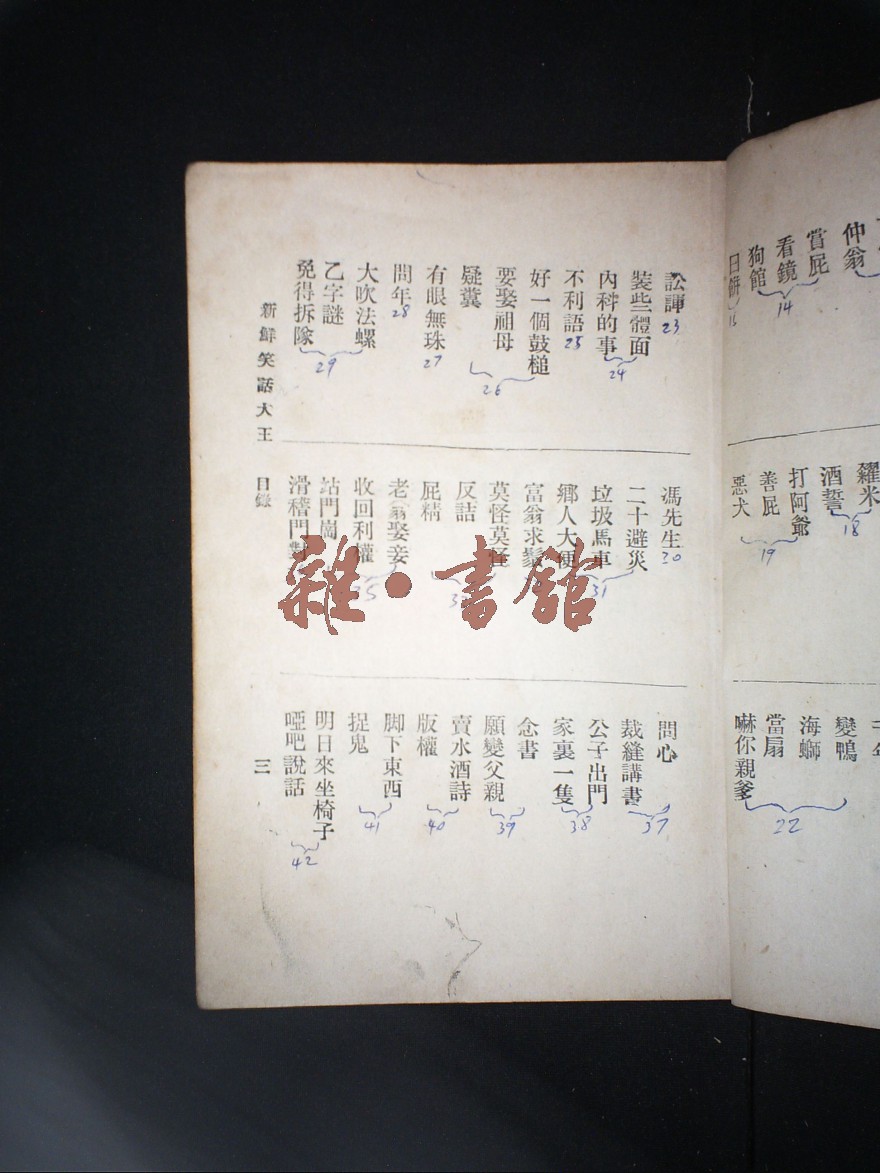 仲翁
嘗屁
看鏡
14
狗館
日餅
糴米
酒誓
18
打阿爺
善屁
19
惡犬
變鴨
海螄
當扇
嚇你親爹
22
訟諢 23
裝些體面
內科的事
24
不利語 25
好一個鼓槌
要娶祖母
26
疑糞
有眼無珠 27
問年 28
大吹法螺
乙字謎
29
免得拆隊
馮先生 30
二十避災
垃圾馬車
31
鄉人大便
富翁求鬍
莫怪莫怪
反詰
屁精
老翁娶妾
收回利權
35
站門崗
滑稽門對
問心
裁縫講書
37
公子出門
家裏一隻
38
念書
願變父親
39
賣水酒詩
版權
40
脚下東西
捉鬼
41
明日來坐椅子
啞吧說話
42
新鮮笑話大王 目錄 三
雜·書館